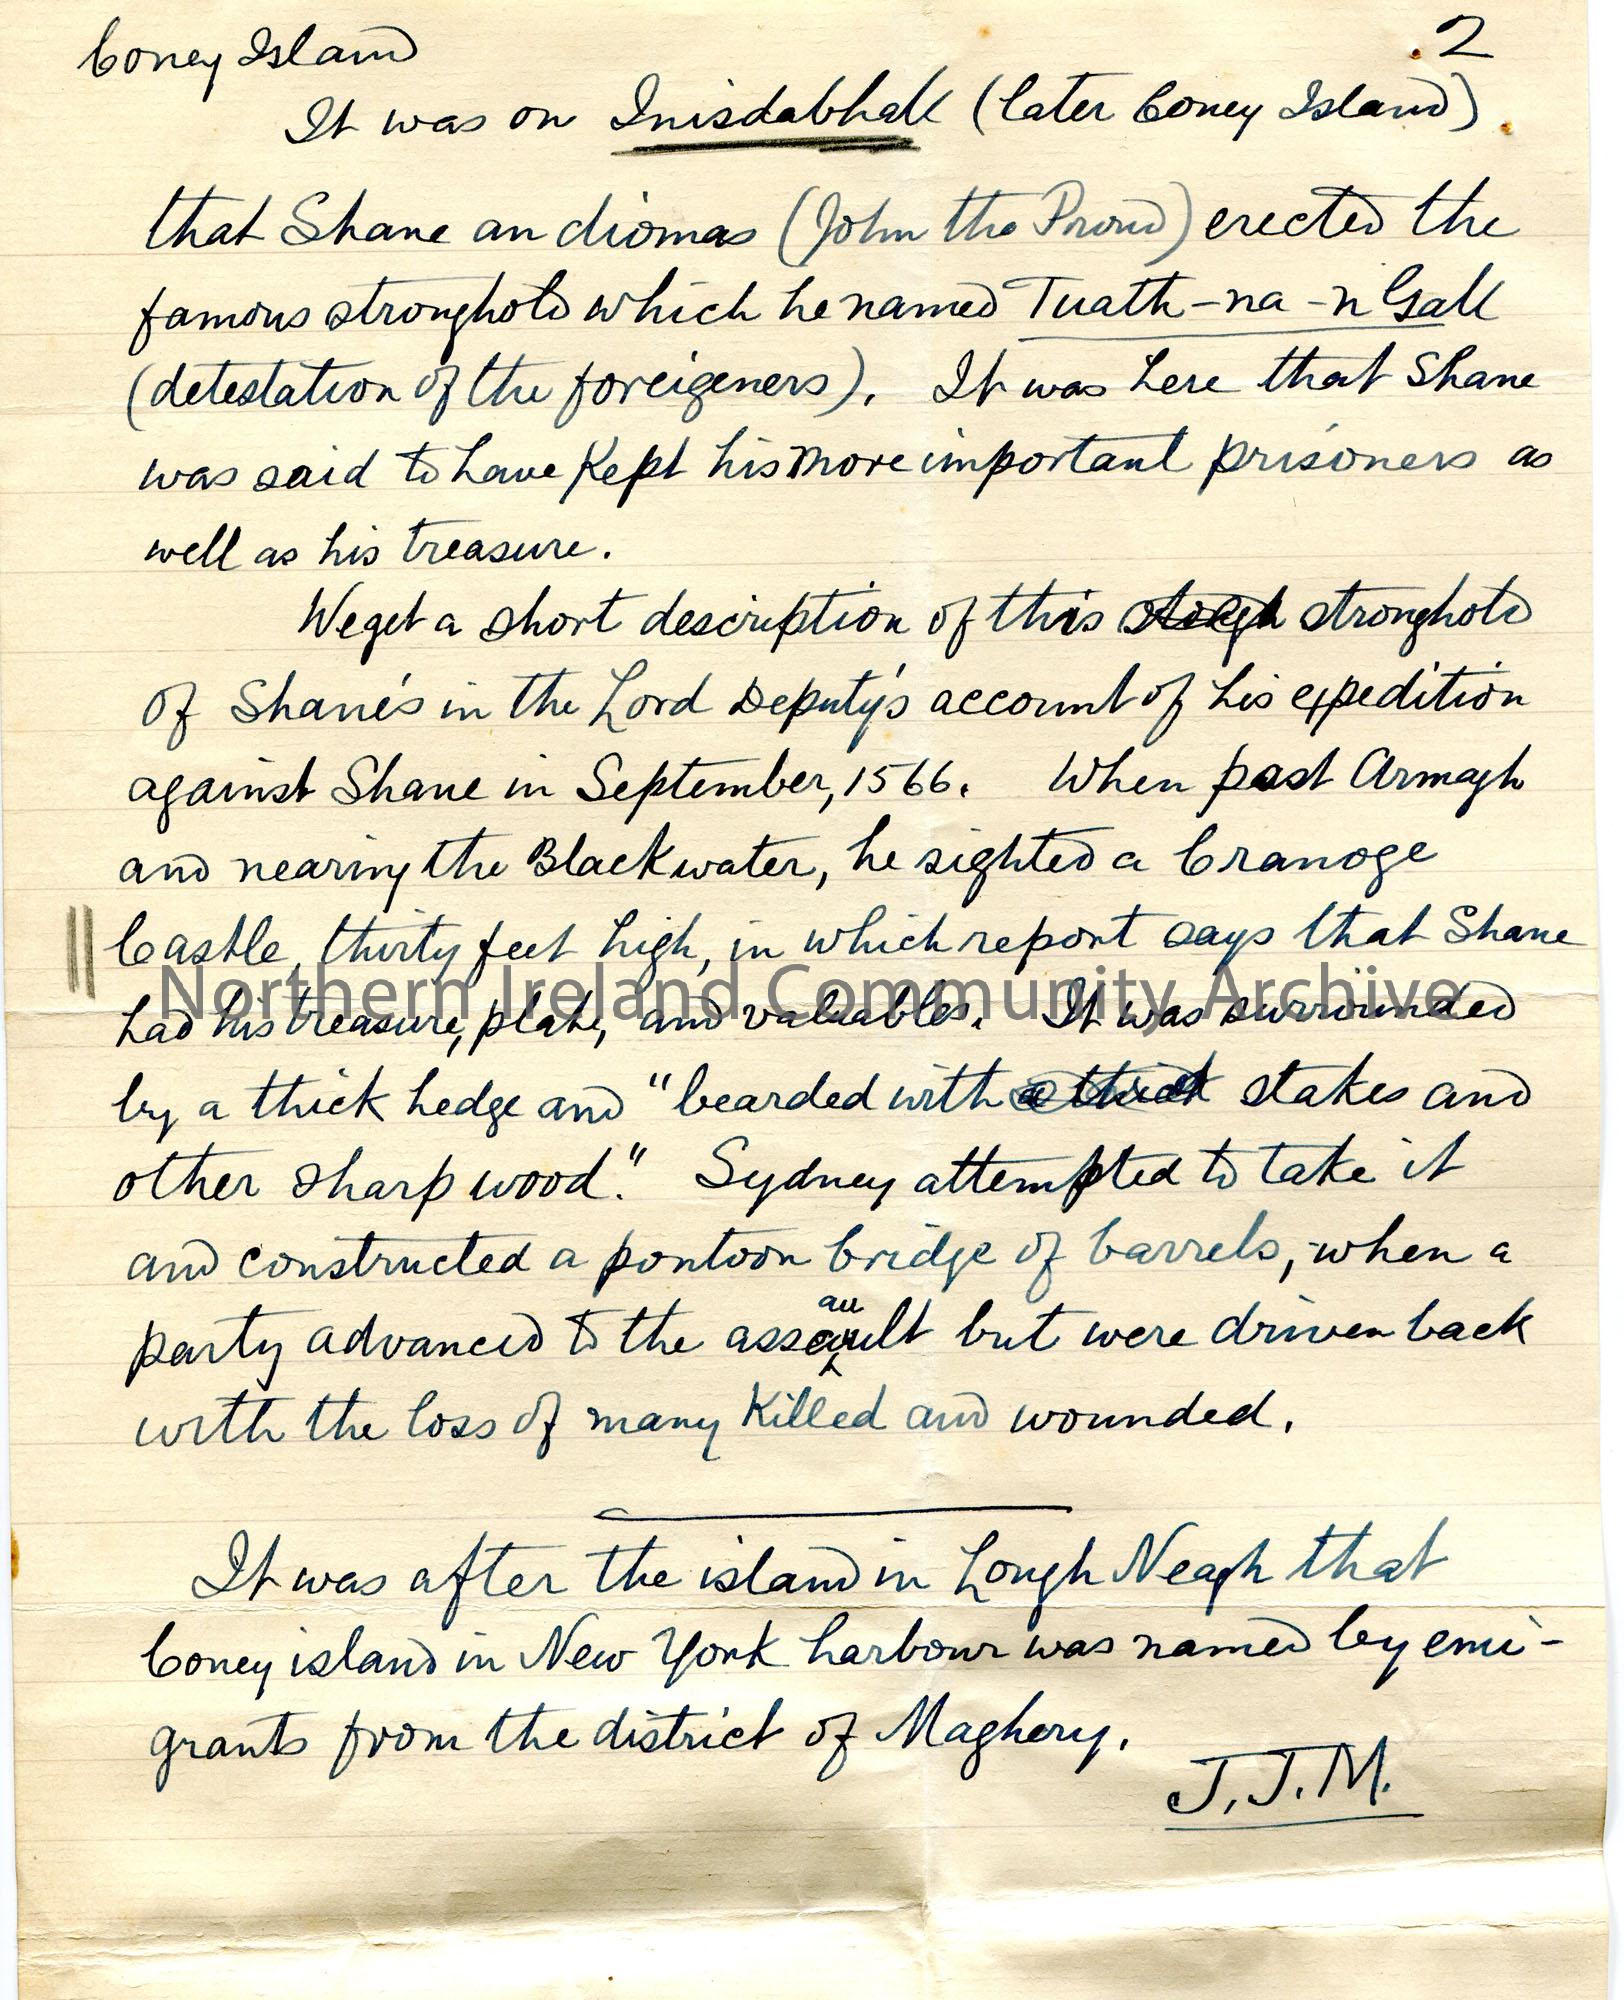 Coney Island
.2
It was on Inisdabhall (later Coney Island)
that Shane an diomas (John the Proud) erected the
famous stronghold which he named Tuath-na-nGall
(detestation of the foreigeners). It was here that Shane
was said to have kept his more important prisoners as
well as his treasure.
We get a short description of this stronghold
of Shane's in the Lord Deputy's account of his expedition
against Shane in September, 1566. When past Armagh
and nearing the Blackwater, he sighted a Cranoge
Castle, thirty feet high, in which report says that Shane
Northern Ireland Community Archive
had his treasure, plate, and valuables. It was surrounded
by a thick hedge and "bearded with a thick stakes and
other sharp wood." Sydney attempted to take it
and constructed a pontoon bridge of barrels, when a
au
party advanced to the assault but were driven back
with the loss of many killed and wounded.
It was after the island in Lough Neagh that
Coney island in New York harbour was named by emi-
grants from the district of Maghery.
J.J.M.